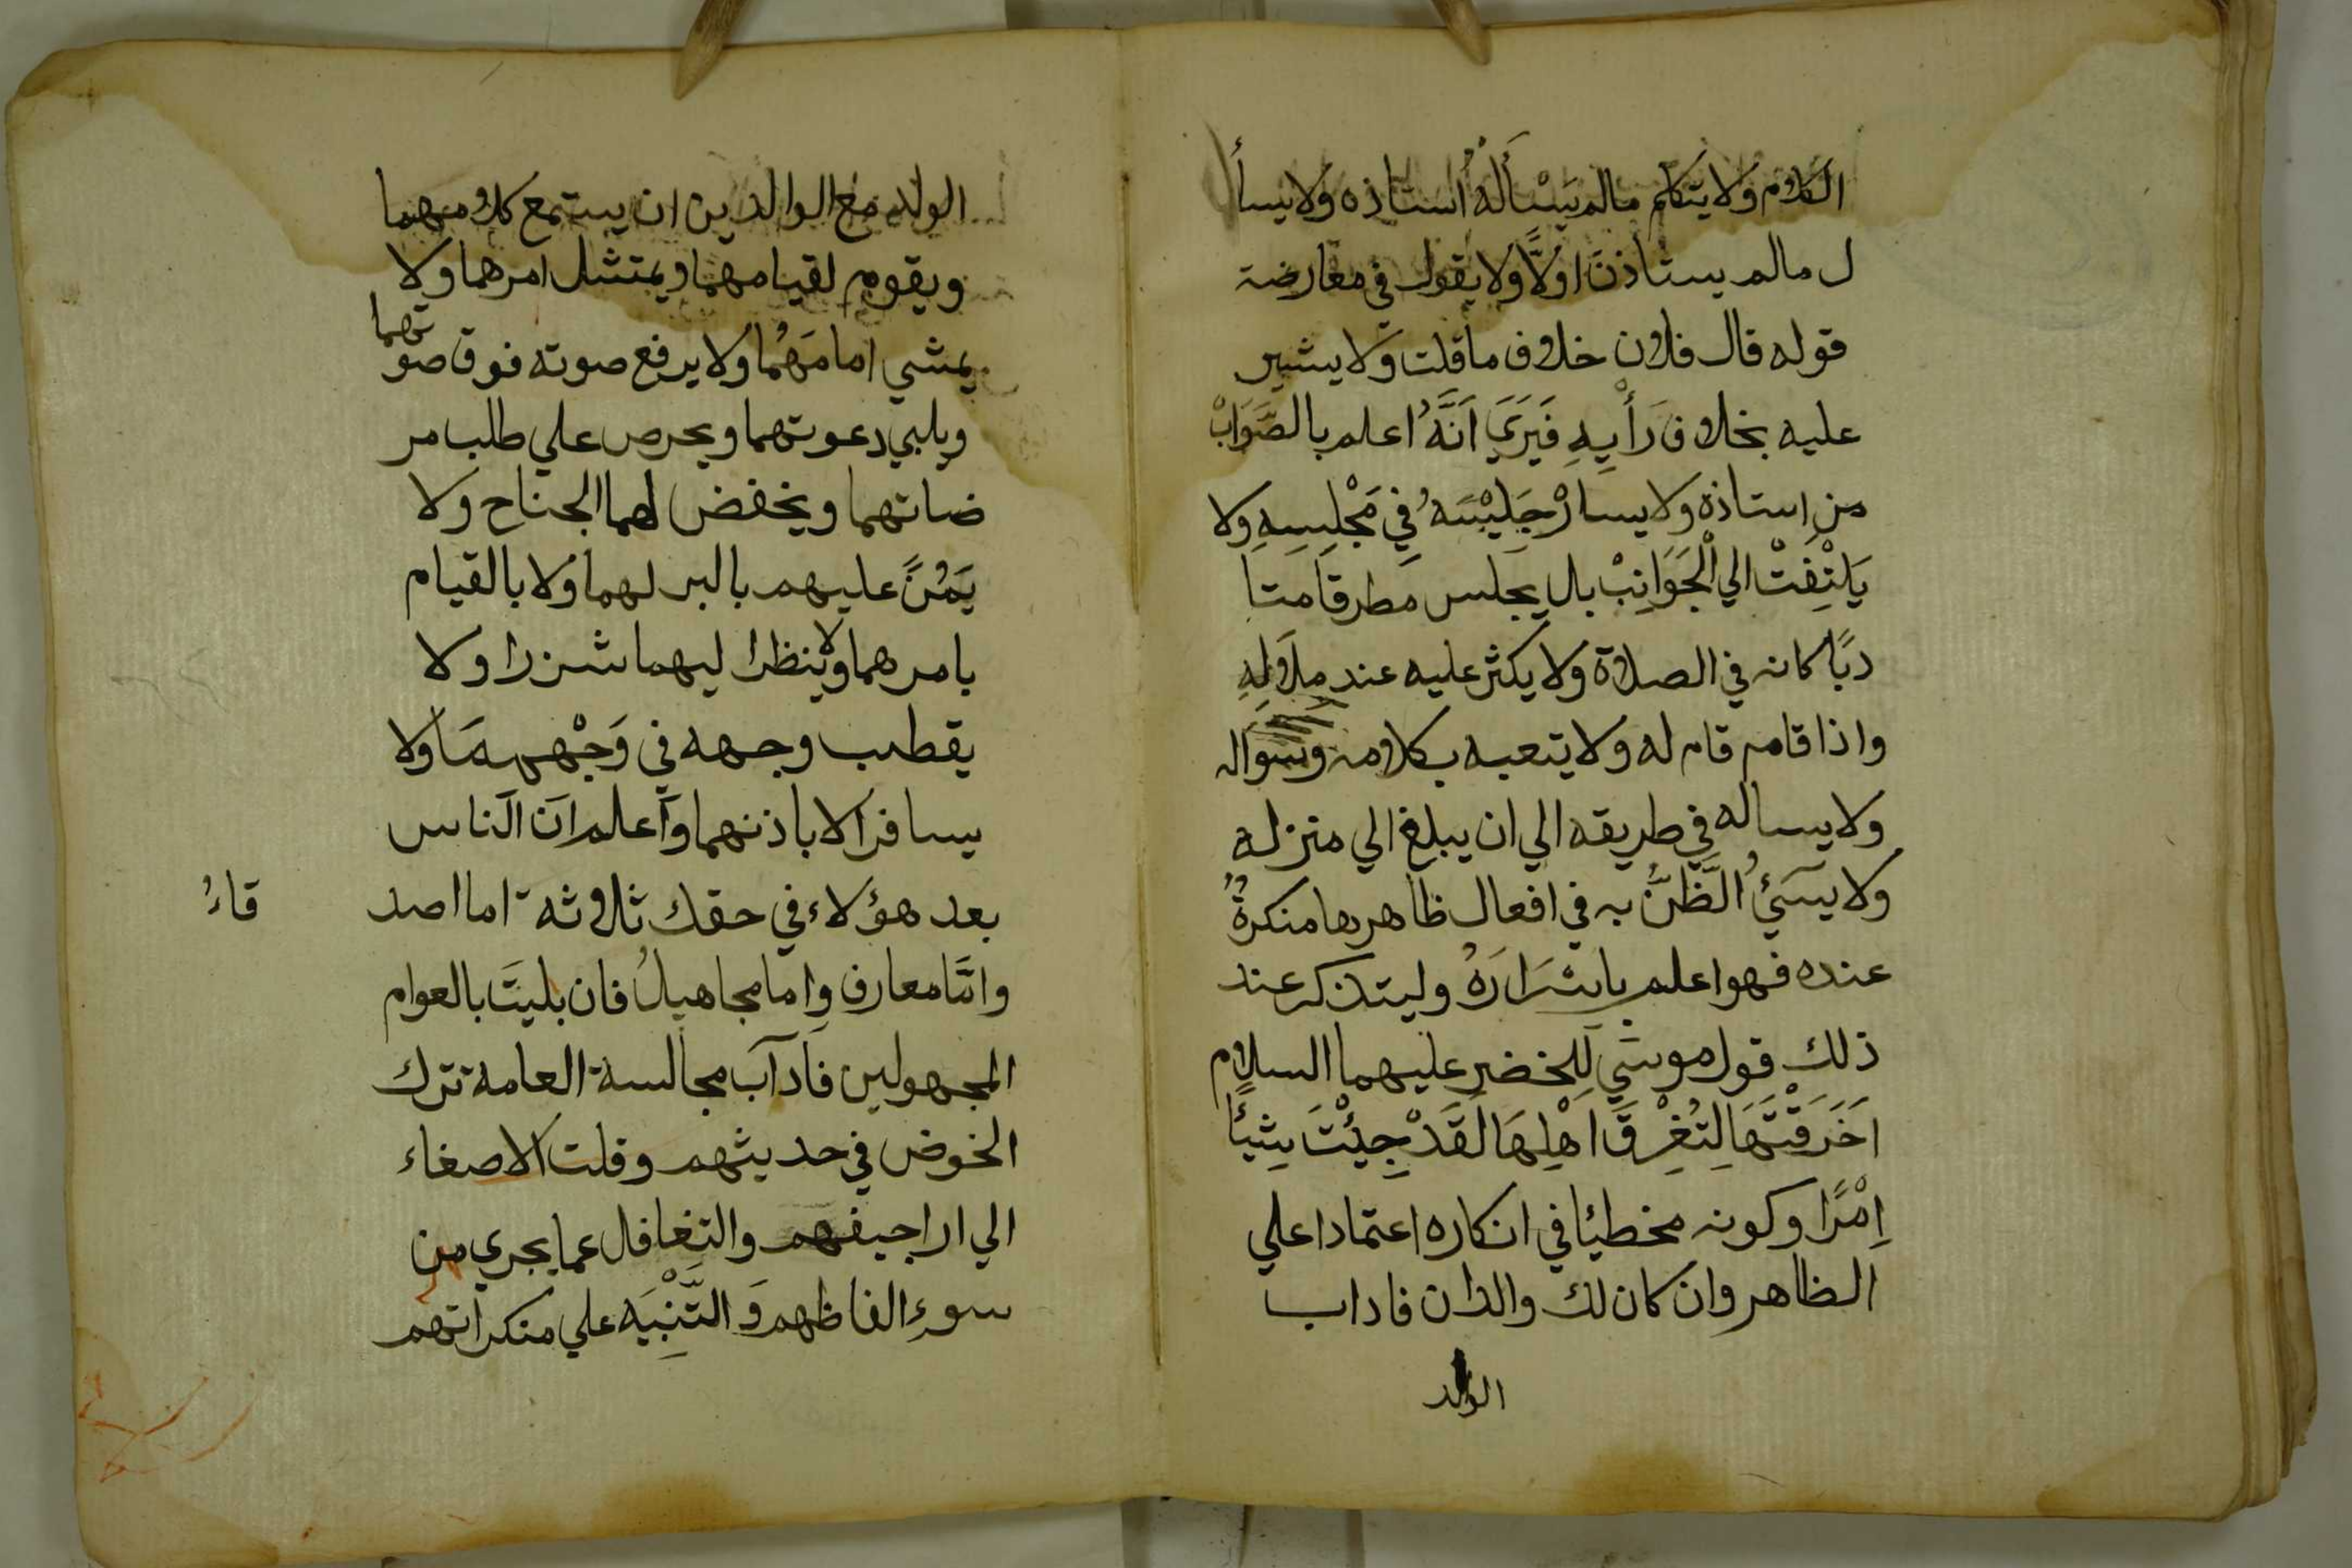 الكلام ولا يتكلم مالم يَسْأَلهُ اُستاذه ولا يسأ
ل مالم يستاذن اولاً ولا يقول في معارضة
قوله قال فلان خلاف ما قلت ولا يشير
عليه بخلاف رَأْيِهِ فَيَرَيَ اَنَّهُ اعلم بالصَّوَابْ
من استاذه ولا يسارْ جَلِيْسَهُ فِي مَجْلِسِهِ ولا
يَلتْفِتْ الي الْجَوَانِبْ بال يجلس مطرقا متا
دبًا كانه في الصلاة ولا يكثر عليه عند ملالِهِ
واذا قام قام له ولا يتعبه بكلامه وسواله
ولا يساله في طريقه الي ان يبلغ الي منزله
ولا يسَيُ الَّظَنَّ به في افعال ظاهرها منكرةٌ
عنده فهو اعلم باسْرَارَهُ وليتذكر عند
ذلك قول موسي لِلخضر عليهما السلام
اَخَرَقْتَهَا لِتُغْرِقَ اَهْلِهَا لَقَدْ جِئْتَ شِيئًا
اِمْرًا وكونه مخطيًا في انكاره اعتمادا علي
الظاهر وان كان لك والدان فاداب
الولد
الولد مع الوالدين ان يستمع كلامهما
ويقوم لقيامهما ويمتثل امرهما ولا
يمشي امامَهُما ولا يرفع صوته فوق صوتهما
ويلبي دعوتهما ويحرص علي طلب مر
ضاتهما ويخفض لهما الجناح ولا
يَمُنَّ عليهم بالبر لهما ولا بالقيام
بامرهما ولا ينظر اليهما شزرا ولا
يقطب وجهه في وَجْههمَا ولا
يسافر الا باذنهما وآعلم ان الناس
بعد هؤلاء في حقك ثلاثة اما اصد
قاءُ
وامَّا معارف واما مجاهيلُ فان بليتَ بالعوام
المجهولين فآدآب مجالسة العامة ترك
الخوض في حديثهم وقلت الاصغاء
الي اراجيفهم والتغافل عما يجري من
سوءِ الفاظهم وَ التَّنْبِيَه علي منكراتهم